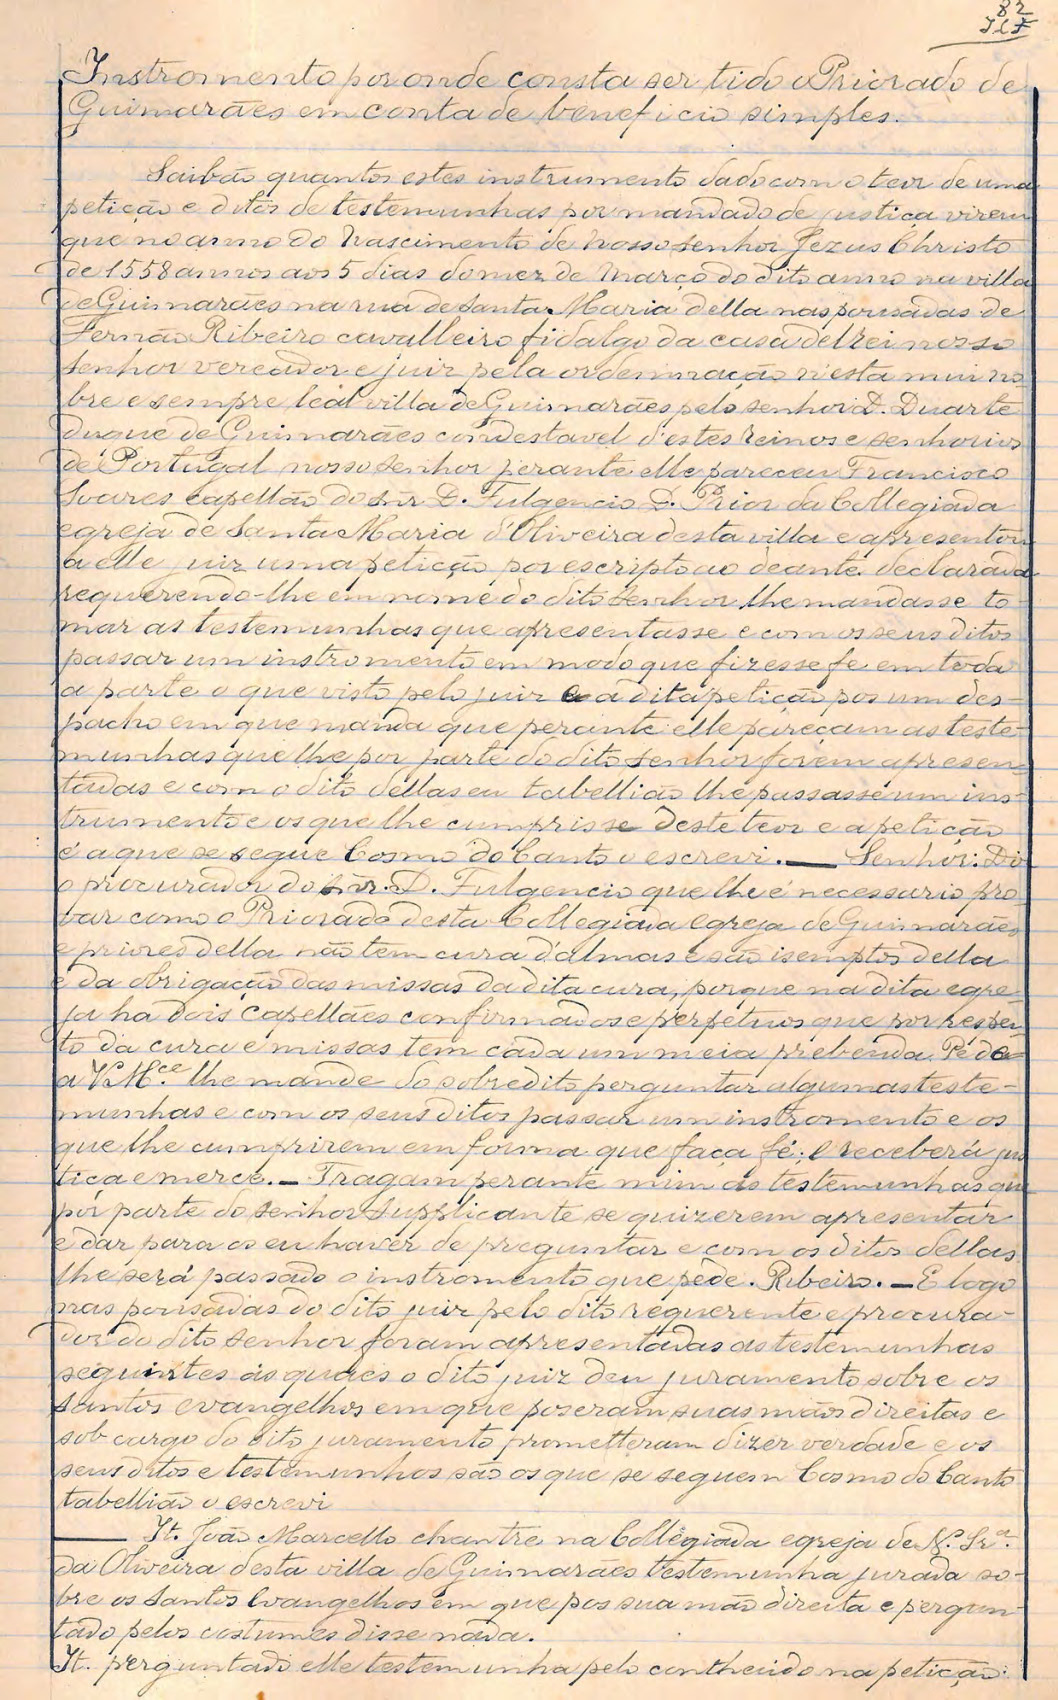 82
Instromento por onde consta ser tido o Priorado de
Guimarães em conta de beneficio simples.
Saibão quantos estes instrumento dado com o teor de uma
petição e ditos de testemunhas por mandado de justiça virem
que no anno do Nascimento de Nosso Senhor Jezus Christo
de 1558 annos aos 5 dias do mez de Março do dito anno na villa
de Guimarães na rua de Santa Maria della nas pousadas de
Fernão Ribeiro cavalleiro fidalgo da casa delrei nosso
Senhor vereador e juiz pela ordennração n'esta mui no-
bre e sempre leal villa de Guimarães pelo senhor D. Duarte
duque de Guimarães condestavel d'estes reinos e senhorios
de Portugal nosso senhor perante elle pareceu Francisco
Soares capellão do Snr D. Fulgencio D. Prior da Collegiada
egreja de Santa Maria d'Oliveira desta villa e apresentou
a elle juiz uma petição por escripto ao deante declarada
requerendo-lhe em nome do dito Senhor lhe mandasse to-
mar as testemunhas que apresentasse e com os seus ditos
passar um instromento em modo que fizesse fe em toda
a parte o que visto pelo juiz e a dita petição pos um des-
pacho em que manda que perante elle pareçam as teste-
munhas que lhe por parte do dito Senhor forem apresen-
tadas e com o dito dellas eu tabellião lhe passasse um ins-
trumento e os que lhe cumprisse deste teor e a petição
é a que se segue Cosmo do Canto o escrevi. — Senhor: Diz
o procurador do Snr. D. Fulgencio que lhe é necessario pro
var como o Priorado desta Collegiada Egreja de Guimarães
e priores della não tem cura d'almas e são isemptos della
e da obrigação das missas da dita cura, porque na dita egre-
ja ha dois capellães confirmados e perpetuos que por respei-
to da cura e missas tem cada um meia prebenda. Pede
a V. M.ce lhe mande do sobredito perguntar algumas teste-
munhas e com os seus ditos passar um instromento e os
que lhe cumprirem em forma que faça fé. E receberá jus
tiça e mercê. — Tragam perante mim as testemunhas que
por parte do Senhor Supplicante se quizerem apresentar
e dar para os eu haver de preguntar e com os ditos dellas
lhe será passado o instromento que pede. Ribeiro. — E logo
nas pousadas do dito juiz pelo dito requerente e procura-
dor do dito Senhor foram apresentadas as testemunhas
seguintes ás quaes o dito juiz deu juramento sobre os
Santos evangelhos em que poseram suas mãos direitas e
sob cargo do dito juramento prometteram dizer verdade e os
seus ditos e testemunhos são os que se seguem Cosmo do Canto
tabellião o escrevi
— It. João Marcello chantre na Collegiada egreja de N. Sr.a
da Oliveira desta villa de Guimarães testemunha jurada so-
bre os Santos Evangelhos em que pos sua mão direita e pergun-
tado pelos costumes disse nada.
It. perguntado elle testemunha pelo contheudo na petição: